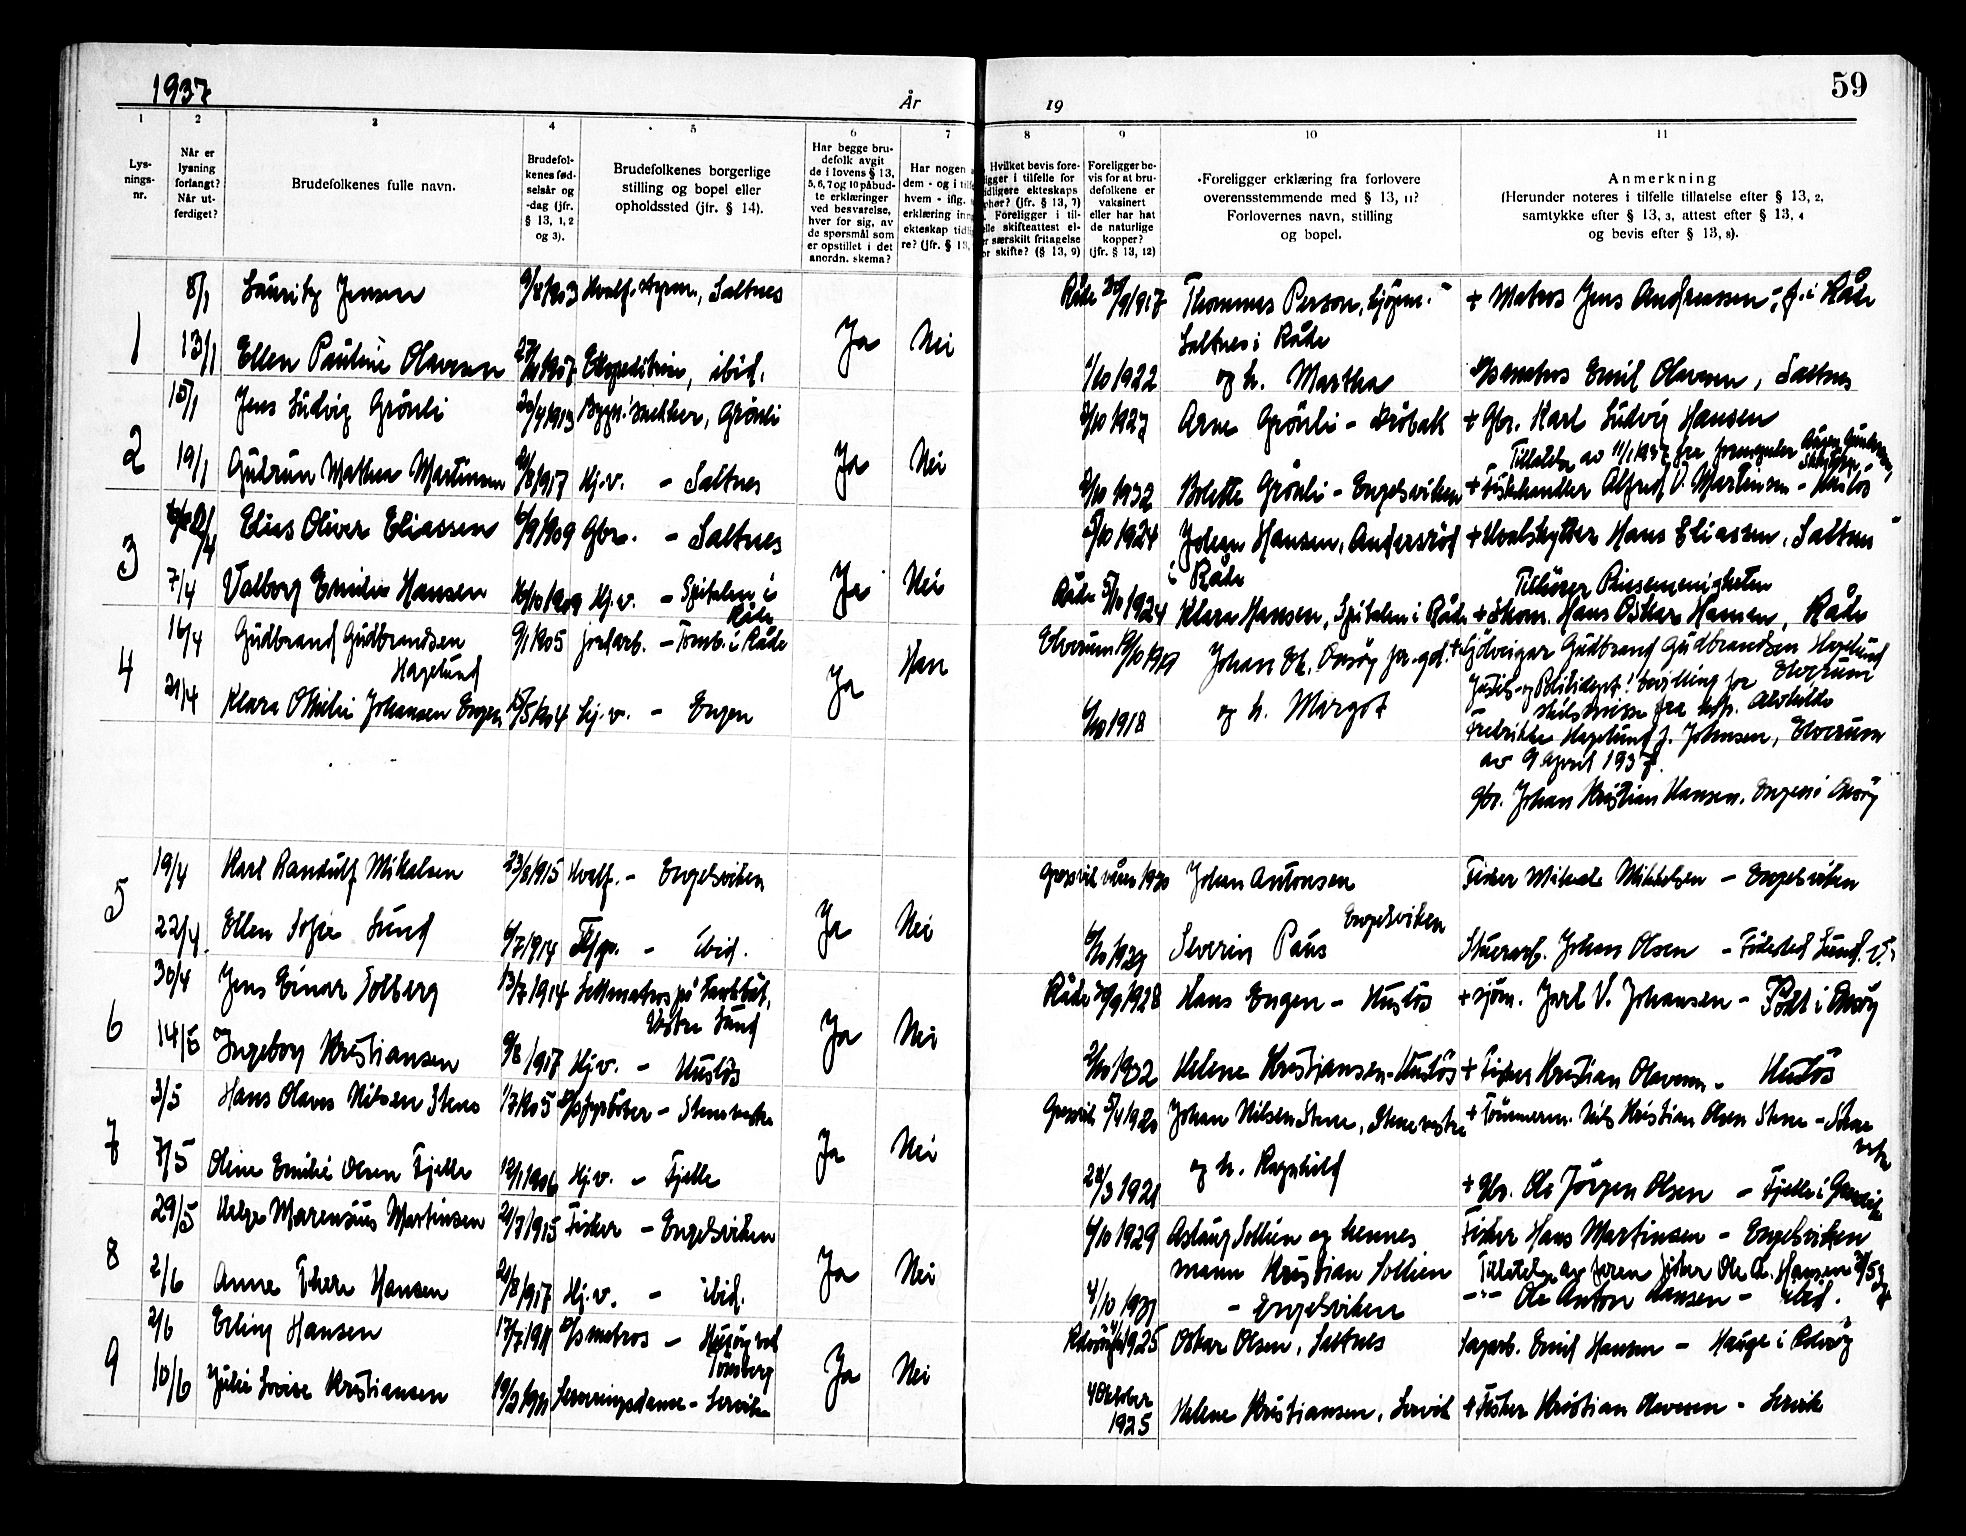 1937
År
19
59
1
2
3
4
5
6
7
8
9
10
11
Lys-
nings-
nr.
Når er
lysning
forlangt?
Når ut-
ferdiget?
Brudefolkenes fulle navn.
Brudefol-
kenes fød-
selsår og
-dag (jfr.
§ 13, 1, 2
og 3).
Brudefolkenes borgerlige
stilling og bopel eller
opholdssted (jfr. § 14).
Har begge bru-
defolk avgit
de i lovens § 13,
5, 6, 7 og 10 påbud-
te erklæringer
ved besvarelse,
hver for sig, av
de spørsmål som
er opstillet i det
anordn. skema?
Har nogen a
dem - og i tilf
hvem - iflg.
erklæring inng
ekteskap tidli
re? (jfr. § 13,
Hvilket bevis fore-
ligger i tilfelle for
tidligere ekteskaps
ophør? (jfr. § 13, 7)
Foreligger i til-
elle skifteattest el-
er særskilt fritagelse
or skifte? (§ 13, 9)
Foreligger be-
vis for at bru-
defolkene er
vaksinert
eller har hat
de naturlige
kopper?
(jfr. § 13, 12)
Foreligger erklæring fra forlovere
overensstemmende med § 13, 11?
Forlovernes navn, stilling
og bopel.
Anmerkning
(Herunder noteres i tilfelle tillatelse efter § 13, 2,
samtykke efter § 13, 3, attest efter § 13, 4
og bevis efter § 13, 8).
1
8/1 Lauritz Jensen Hvalf. styrm., Saltnes Råde Thommes Person, sjøm. - + Matros Jens Andreassen, f. i Råde
Saltnes i Råde
13/1 Ellen Pauline Olavesen Ekspeditrise, ibid. Ja Nei 1/10 1922 og h. Martha Emil Olavesen, Saltnes
2
15/1 Jens Ludvig Grönli 20/7 1913 Bygn. snekker, Grönli 2/10 1927 Arne Grönli - Dröbak + Gbr. Karl Ludvig Hansen
Tillatelse av 11/1 1937 fra formynder
19/1 Gudrun Mathea Martinsen Hj.v. - Saltnes Ja Nei 2/10 1932 Bolette Grönli - Engelsviken + Fiskehandler Alfred V. Martinsen - Husløs
3
2/4 Elias Oliver Eliassen 6/9 1909 Gbr. - Saltnes 5/10 1924 Johan Hansen, Andersröd + Hvalskytter Hans Eliassen, Saltnes
i Råde
Tilhører Pinsemenigheten
7/4 Valborg Emilie Hansen 16/10 1909 Hj.v. - Spitalen i Råde Ja Nei Råde 5/10 1924 Klara Hansen, Spitalen i Råde + Skom. Hans Oskar Hansen, Råde
4
16/4 Gudbrand Gudbrandsen 9/1 1905 jordarb. - Tomb. i Råde Elverum Johan Chr. Onsöy Gudbrand Gudbrandsen Hagelund
Hagelund Ja Han Elverum
Justis- og Politidept! bevilling for
skilsmisse fra
21/4 Klara Othilie Johansen Engen Hj.v. - Engen 6/10 1918 og h. Margot
Fredrikke Hagelund f. Johansen, Elverum
av 9 April 1937.
Gbr. Johan Kristian Hansen, Engen i Onsöy
5
19/4 Karl Randulf Mikalsen 23/8 1915 Hvalf. - Engelsviken Gressvik våren Johan Antonsen Fisker Mikael Mikkelsen - Engelsviken
Engelsviken
22/4 Ellen Sofie Lund 6/7 1914 - ibid. Ja Nei 6/10 1929 Severin Paus Stuerarb. Johan Olsen - Födested Lund.
6
30/4 Jens Einar Solberg 13/7 1914 Lettmatros på Tankbåt, Råde 30/9 1928 Hans Engen - Husløs + sjöm. Jarl V. Johansen - i Onsöy
Vestre Lund
14/5 Ingeborg Kristiansen 9/8 1917 Hj.v. - Husløs Ja Nei 2/10 1932 Helene Kristiansen - Husløs + Fisker Kristian Olavesen - Husløs
7
3/5 Hans Olaves Nilsen Stene 1/7 1905 D/S fyrböter - Stene vestre Gressvik 5/4 1920 Johan Nilsen Stene, Stene vestre + Tömmerm. Nils Kristian Olsen Stene - Stene
vestre
7/5 Oline Emilie Olsen Fjelle 12/1 1906 Hj.v. - Fjelle Ja Nei 28/3 1921 og h. Ragnhild + Gbr. Ole Jörgen Olsen - Fjelle i
8
29/5 Helge Marensius Martinsen 21/7 1915 Fisker - Engelsviken 6/10 1929 Aslaug Sollien og hennes Fisker Hans Martinsen - Engelsviken
mann Kristian Sollien Tillatelse av faren fisker Ole A. Hansen
2/6 Anne Thea Hansen 21/8 1917 Hj.v. - ibid. Ja Nei 4/10 1931 - Engelsviken - " - Ole Anton Hansen - ibid.
9
2/6 Erling Hansen 17/7 1911 D/S matros - Husöy ved 1925 Oskar Olsen, Saltnes Sagarb. Emil Hansen - Hauge i Rolvsöy
Tönsberg
10/6 Julie Lovise Kristiansen Serveringsdame - Lervik Ja Nei 4 Oktober Helene Kristiansen, Lervik + Fisker Kristian Olavesen - Lervik
1925